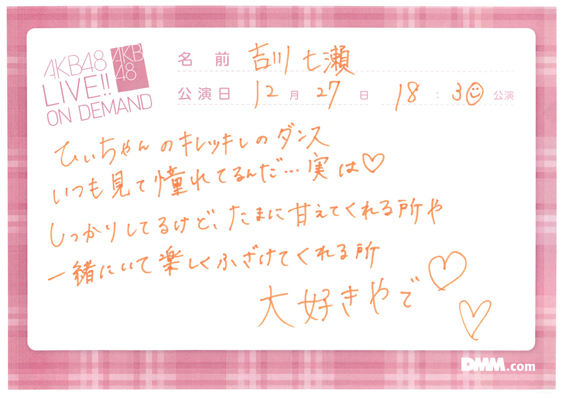 AKB48
LIVE!!
ON DEMAND
AKB
48
名 前 吉川 七瀬
公演日 12 月 27 日 18 : 30 公演
ひぃちゃんのキレッキレのダンス
いつも見て憧れてるんだ…実は♡
しっかりしてるけど、たまに甘えてくれる所や
一緒にいて楽しくふざけてくれる所
大好きやで♡
♡
DMM.com